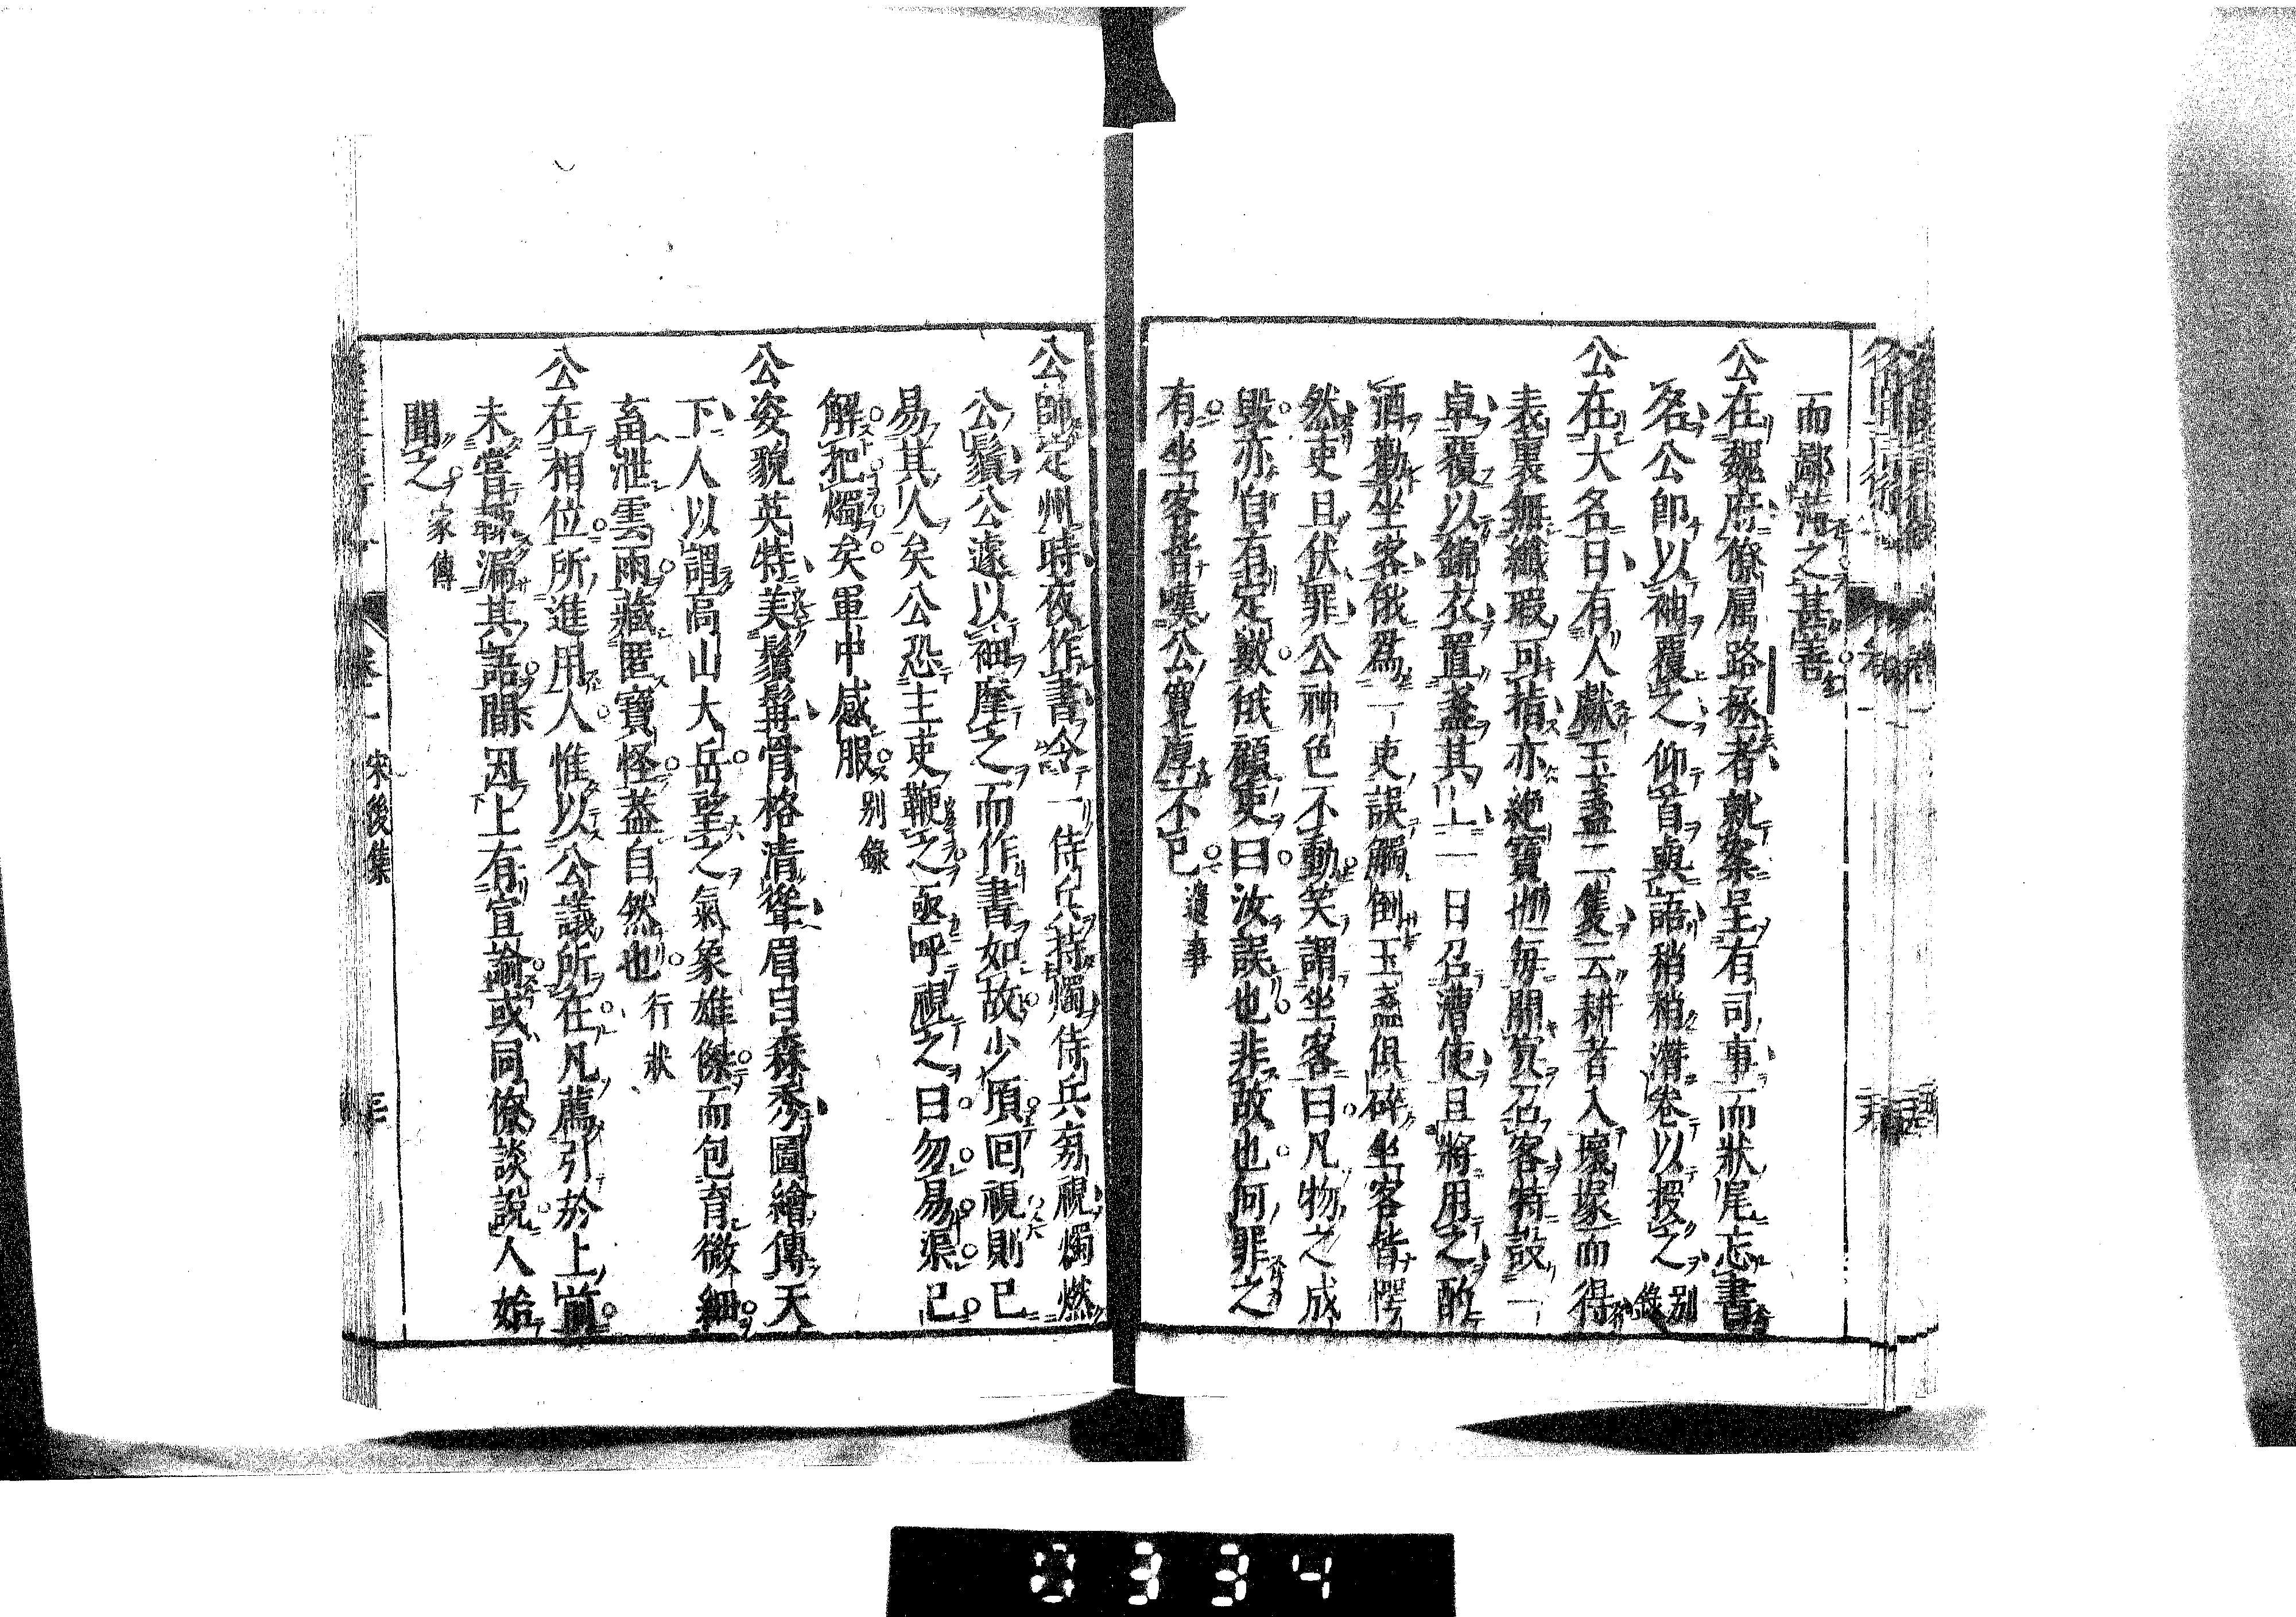 而鄙薄之甚善
公在魏府僚属路拯者就案呈有司事而狀尾忘書
名公即以袖覆之仰首與語稍稍潛卷以授之別錄
公在大名日有人獻玉盞二隻云耕者入壞塚而得
表裏無纖瑕可指亦絶寶也每開宴召客特設一
卓覆以錦衣置盞其上一日召漕使且將用之酌
酒勸坐客俄爲一吏誤觸倒玉盞俱碎坐客皆愕
然吏且伏罪公神色不動笑謂坐客曰凡物之成
毀亦自有定數俄顧吏曰汝誤也非故也何罪之
有坐客皆嘆公寬厚不已遺事
公帥定州時夜作書令一侍兵持燭侍兵旁視燭燃
公鬚公遽以袖摩之而作書如故少頃回視則已
易其人矣公恐主吏鞭之亟呼視之曰勿易渠已
解把燭矣軍中感服別錄
公姿貌英特美鬚髯骨格清聳眉目森秀圖繪傳天
下人以謂高山大岳望之氣象雄傑而包育微細
畜泄雲雨藏匿寶怪蓋自然也行狀
公在相位所進用人惟以公議所在凡薦引於上前
未嘗輒漏其語間因上有宣諭或同僚談説人始
聞之家傳
卷一 宋後集 三
0334